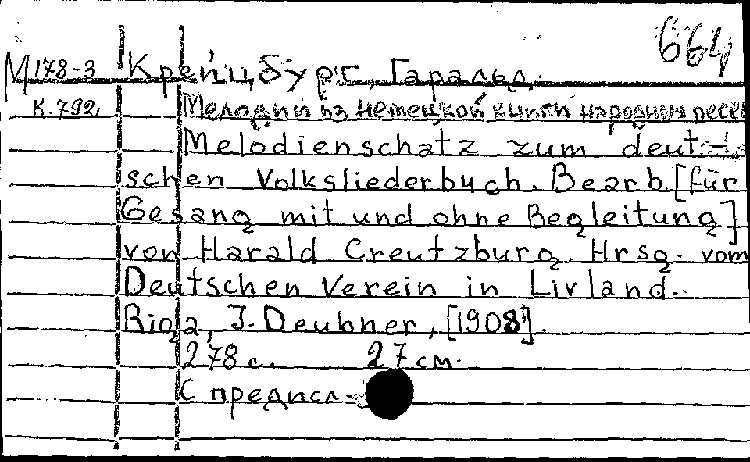 664
М178-3 Крейцбург, Гаральд.
К.792 Мелодии из немецкой книги народных песен
Melodienschatz zum deut-
schen Volksliederbuch. Bearb. [für
Gesang mit und ohne Begleitung]
von Harald Creutzburg. Hrsg. vom
Deutschen Verein in Livland.
Riga, J. Deubner, [1908].
278 с. 27 см.
С предисл.